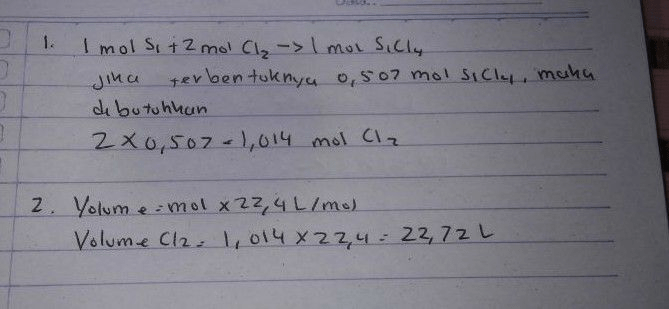 1. 1 mol Si + 2 mol Cl2 -> 1 mol SiCl4
Jika terbentuknya 0,507 mol SiCl4, maka
dibutuhkan
2 x 0,507 = 1,014 mol Cl2
2. Volume = mol x 22,4 L/mol
Volume Cl2 = 1,014 x 22,4 = 22,72 L